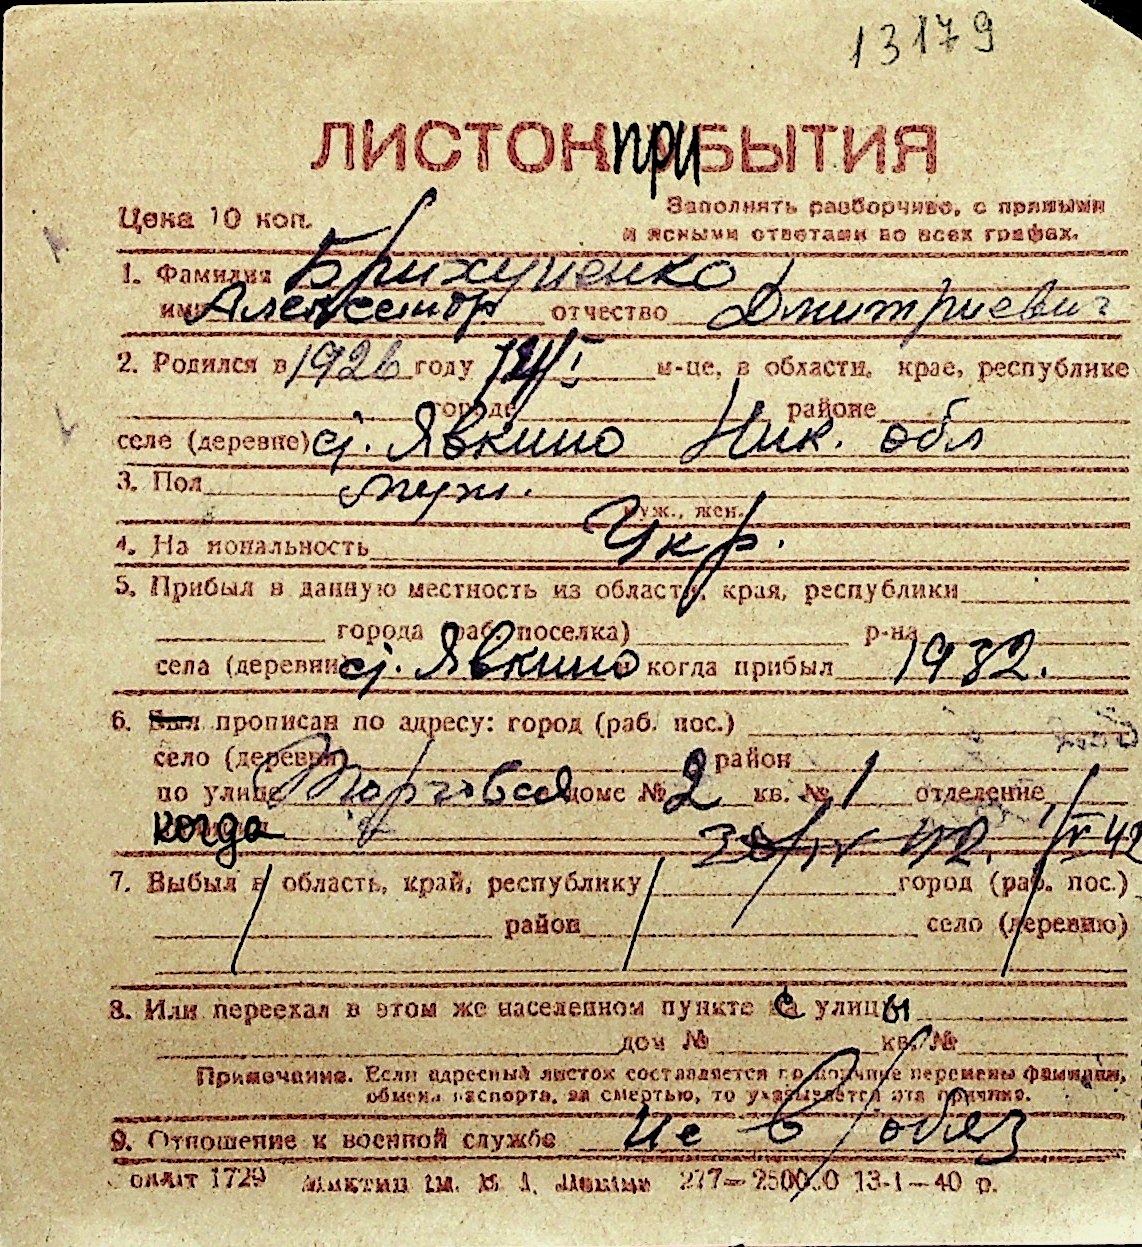 13179
ЛИСТОК ПРИБЫТИЯ
Цена 10 коп.
Заполнять разборчиво, с прямыми
и ясными ответами во всех графах.
1. Фамилия
имя Александр отчество Дмитриевич
2. Родился в 1926 году м-це, в области, крае, республике
городе районе
селе (деревне) с. Явкино Ник. обл
3. Пол муж.
муж., жен.
4. Национальность Укр.
5. Прибыл в данную местность из области, края, республики
города (раб. поселка) р-на
села (деревни) с. Явкино и когда прибыл 1932.
6. Был прописан по адресу: город (раб. пос.)
село (деревня) район
по улице Торговая доме № 2 кв. № 1 отделение
когда 30/IV 42. 1/V 42
7. Выбыл в область, край, республику город (раб. пос.)
район село (деревню)
8. Или переехал в этом же населенном пункте с улицы
дом № кв. №
Примечание. Если адресный листок составляется по причине перемены фамилии,
обмена паспорта, за смертью, то указывается эта причина.
9. Отношение к военной службе не в/обяз
1729 им. 277—250000 13-1—40 р.